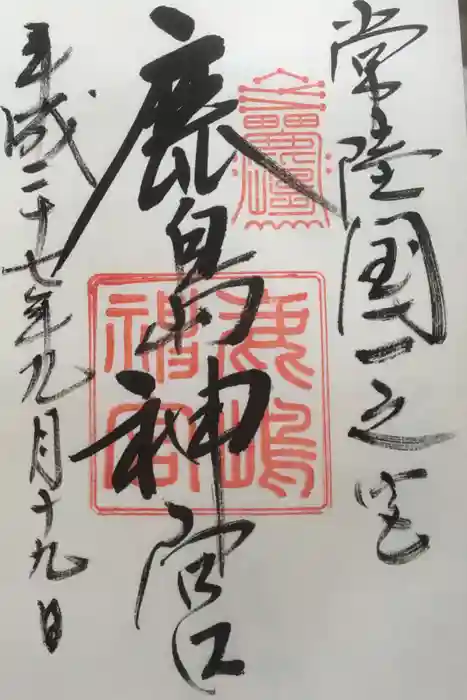 常陸国一之宮
鹿島神宮
鹿嶋神宮
平成二十七年九月十九日